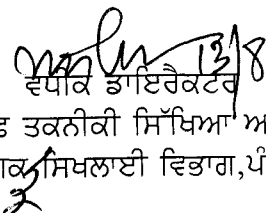 13/8
ਵਧੀਕ ਡਾਇਰੈਕਟਰ
ਤਕਨੀਕੀ ਸਿੱਖਿਆ ਅ
ਸਿਖਲਾਈ ਵਿਭਾਗ,ਪੰ